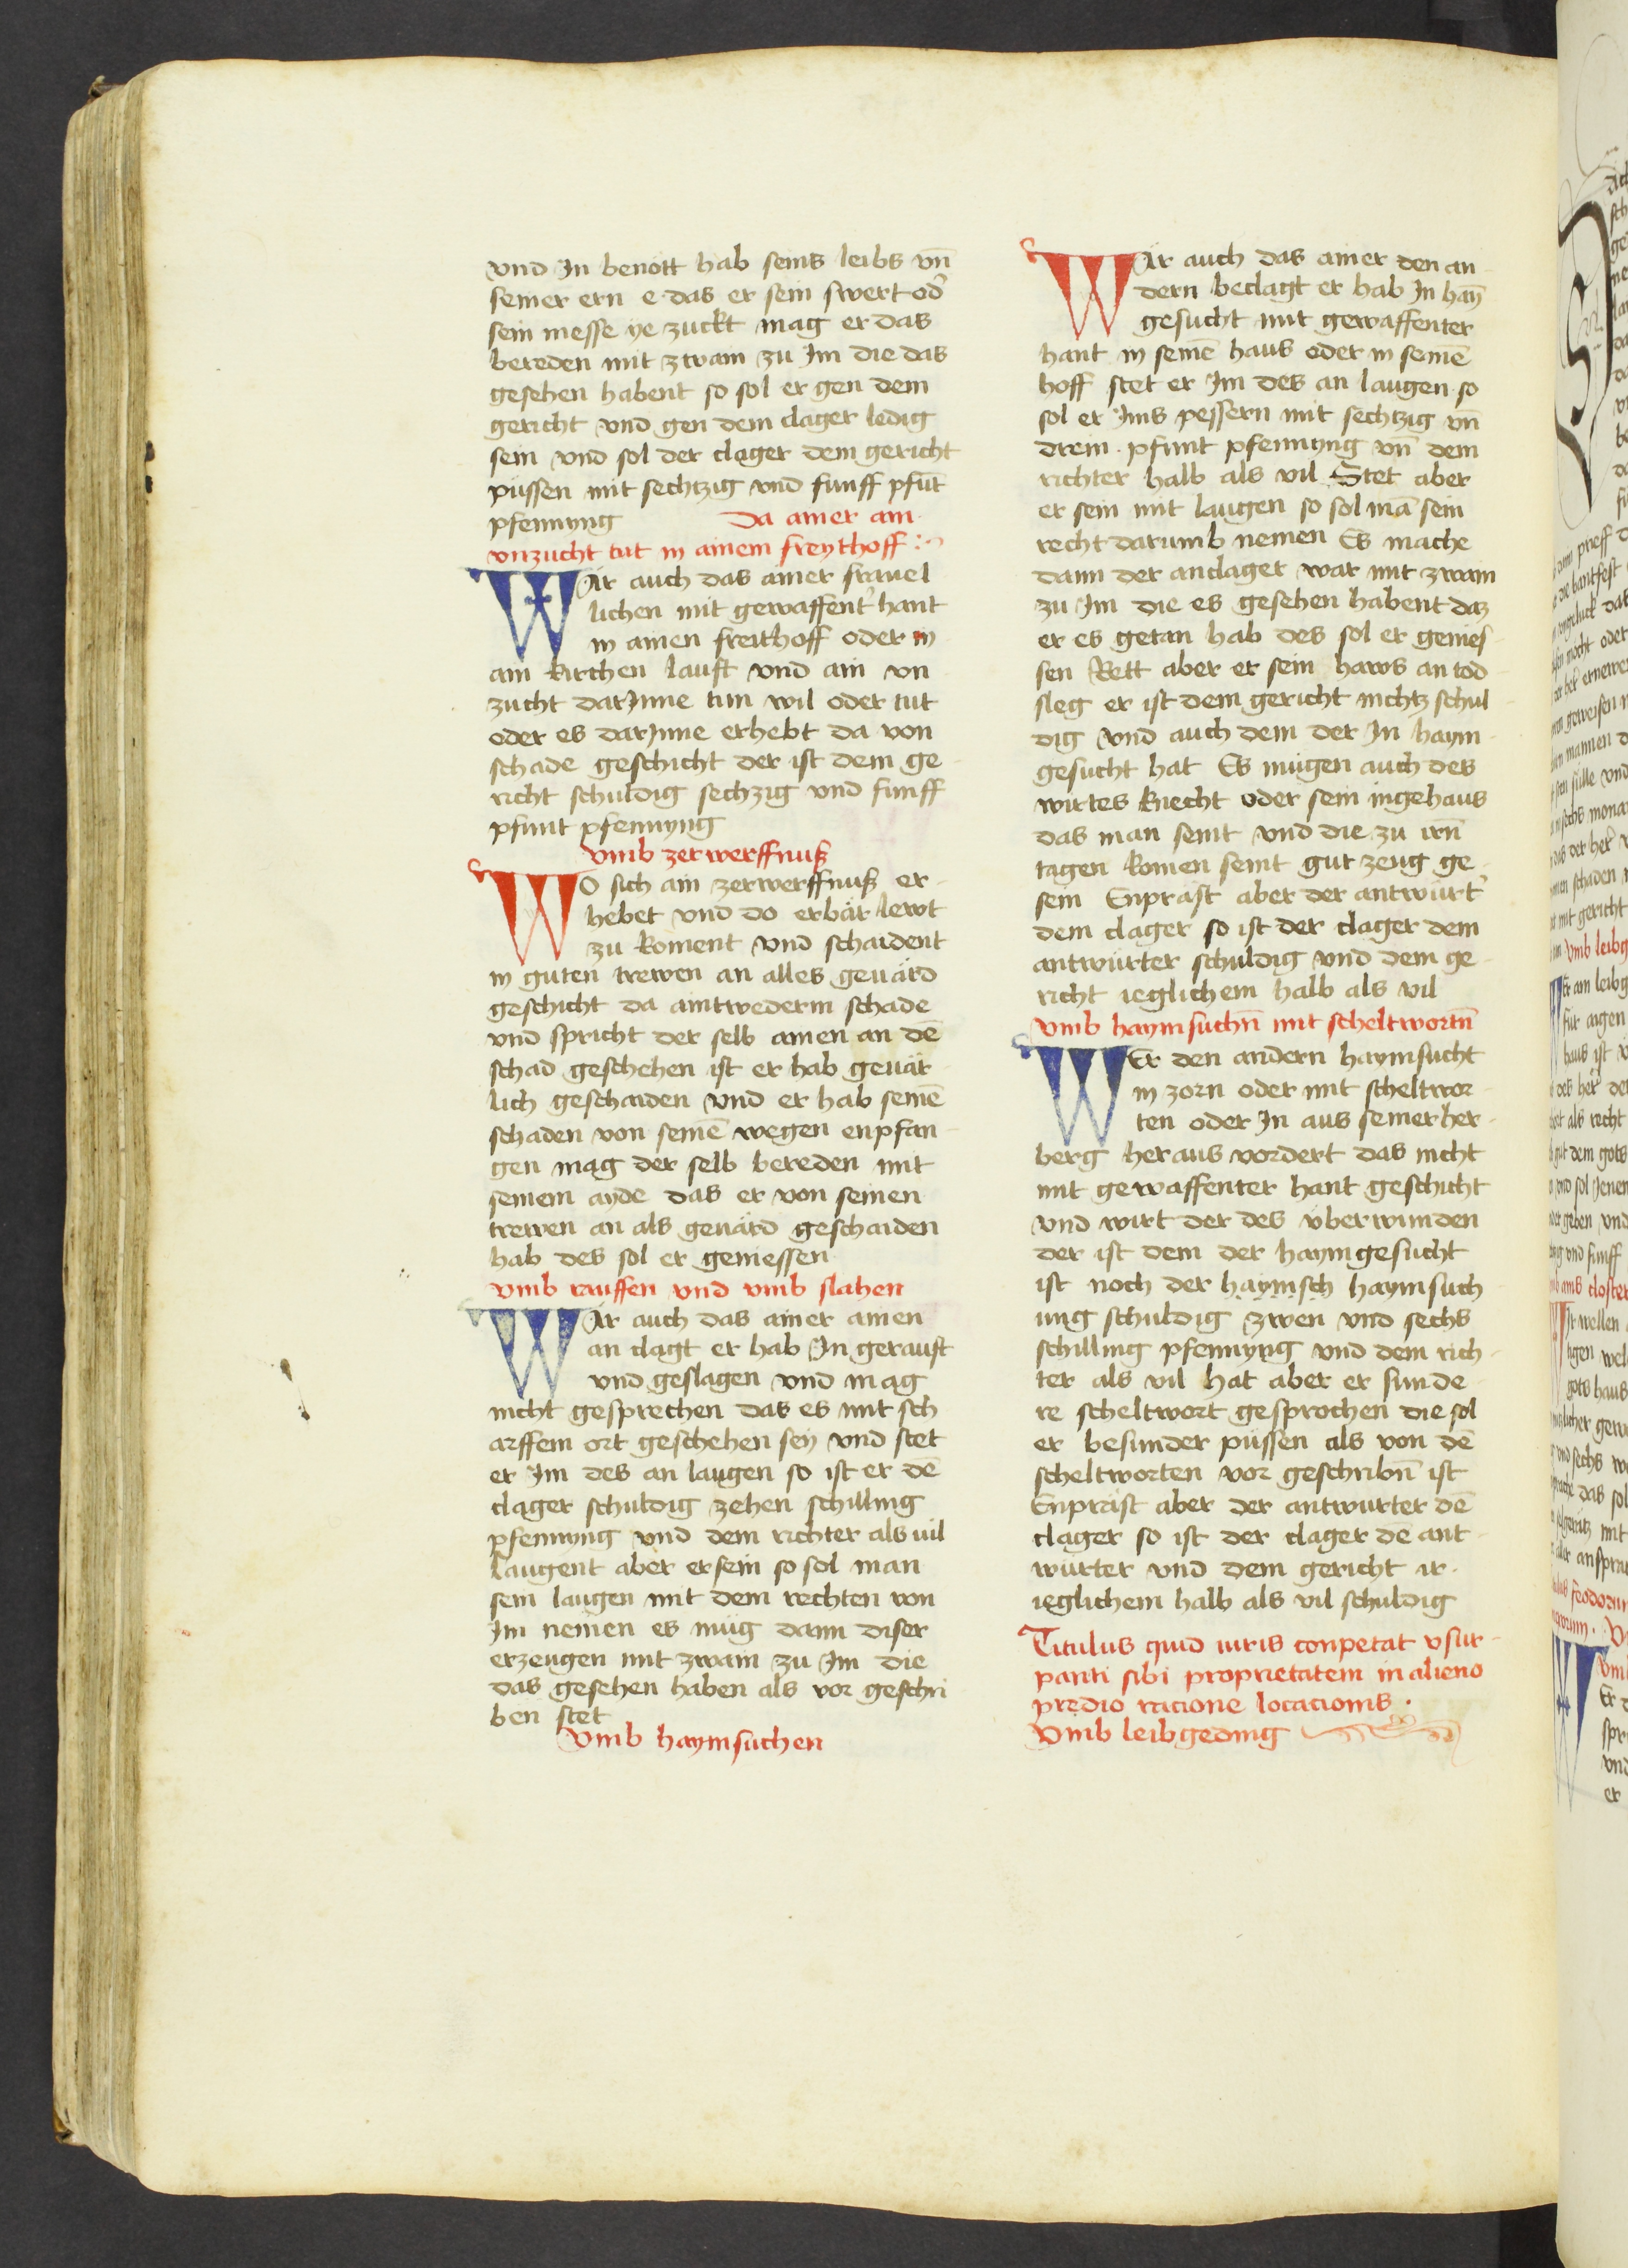 vnd In benött hab seins leibs vn̄
seiner ern e das er sein swert od'
sein messe ye zuckt mag er das
bereden mit zwain zu Im die das
gesehen habent so sol er gen dem
gericht vnd gen dem clager ledig
sein vnd sol der clager dem gericht
püssen mit sechtzig vnd funff pfūt
pfennyng
Da ainer ain
vnzucht tut in ainem freythoff
WÄr auch das ainer frauel
lichen mit gewaffent' hant
in ainen freithoff oder in
ain kirchen lauft vnd ain vn
zucht darInne tun wil oder tut
oder es darInne erhebt da von
schade geschicht der ist dem ge
richt schuldig sechzig vnd funff
pfunt pfennyng
vmb zerwerffnuß
WO sich ain zerwerffnuß er-
hebet vnd do erbär lewt
zu koment vnd schaident
in guten trewen an alles geuärd
geschicht da aintwederm schade
vnd spricht der selb ainen an dē
schad geschehen ist er hab geuär-
lich geschaiden vnd er hab seinē
schaden von seinē wegen enpfan-
gen mag der selb bereden mit
seinem ayde das er von seinen
trewen an als geuärd geschaiden
hab des sol er geniessen
vmb rauffen vnd vmb slahen
WÄr auch das ainer ainen
an clagt er hab In gerauft
vnd geslagen vnd mag
nicht gesprechen das es mit sch
arffem ort geschehen sey vnd stet
er Im des an laugen so ist er dē
clager schuldig zehen schilling
pfennyng vnd dem richter als uil
laugent aber er sein so sol man
sein laugen mit dem rechten von
Im nemen es müg dann diser
erzeugen mit zwain zu Im die
das gesehen haben als vor geschri
ben stet
Vmb haymsuchen
WÄr auch das ainer den an-
dern beclagt er hab In hay̅
gesucht mit gewaffenter
hant in seinē haus oder in seinē
hoff stet er Im des an laugen so
sol er Ims pessern mit sechtzig vn̄
drein pfunt pfennyng vn̄ dem
richter halb als vil Stet aber
er sein mit laugen so sol mā sein
recht darumb nemen Es mache
dann der anclager war mit zwain
zu Im die es gesehen habent daz
er es getan hab des sol er genies-
sen Rett aber er sein haws an tod
sleg er ist dem gericht nichtz schul
dig vnd auch dem der In haym
gesucht hat Es mügen auch des
wirtes knecht oder sein ingehaus
das man seint vnd die zu irn̄
tagen komen seint gut zeug ge-
sein Enprast aber der antwürt'
dem clager so ist der clager dem
antwürter schuldig vnd dem ge-
richt ieglichem halb als vil
Vmb haymsuchn̄ mit scheltwortn̄
WEr den andern haymsucht
in zorn oder mit scheltwor-
ten oder In aus seiner her-
berg heraus vordert das nicht
mit gewaffenter hant geschicht
vnd wirt der des überwunden
der ist dem der haymgesucht
ist noch der haymsch haymsuch
ung schuldig zwen vnd sechs
schilling pfennyng vnd dem rich-
ter als vil hat aber er sunde-
re scheltwort gesprochen die sol
er besunder püssen als von dē
scheltworten vor geschribn̄ ist
Enprast aber der antwurter dē
clager so ist der clager dē ant-
würter vnd dem gericht ir
ieglichem halb als vil schuldig
Titulus quid iuris conpetat vsur-
panti sibi proprietatem in alieno
predio racione locacionis.
Vmb leibgeding